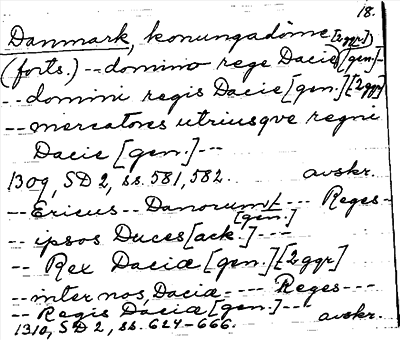 18.
Danmark, konungadöme [2ggr])
(forts.) -- domino rege Dacie) [gen.] -
-- domini regis Dacie [gen.] [2ggr]
-- mercatores utriusqve regni
Dacie [gen.] ---
1309, SD 2, ss. 581, 582. avskr.
-- Ericus -- Danorum --- Reges --
[gen.]
-- ipsos Duces [ack.] ---
-- Rex Daciæ [gen.] [2ggr]
-- inter nos, Daciæ ---- Reges ---
-- Regis Daciæ [gen.] ---
1310, SD 2, ss. 624-666. avskr.